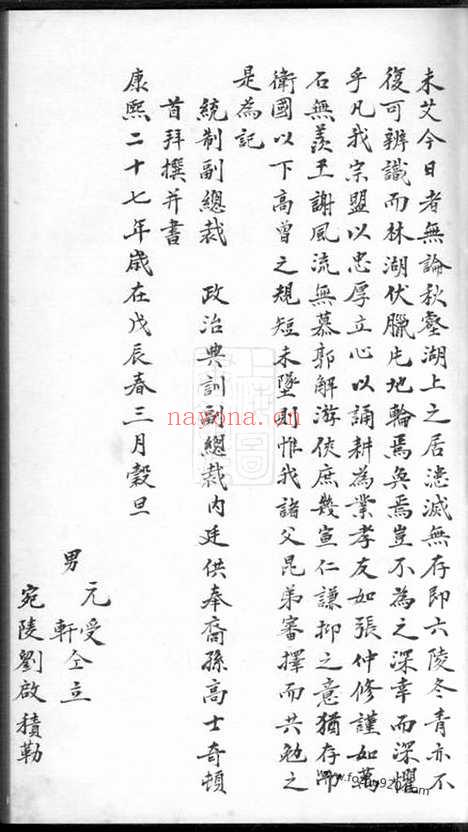 未艾今日者無論秋壑湖上之居湮滅無存即六陵冬青亦不
復可辨識而林湖伏臘片地輪焉奐焉豈不為之深幸而深懼
乎凡我宗盟以忠厚立心以誦耕為業孝友如張仲修謹如萬
石無羨王謝風流無慕郭解游俠庶幾宣仁謙抑之意猶存而
衛國以下高曾之規矩未墜則惟我諸父昆弟審擇而共勉之
是為記
統制副總裁 政治典訓副總裁內廷供奉裔孫高士奇頓
首拜撰并書
康熙二十七年歲在戊辰春三月穀旦
男 元受
軒仝立
宛陵劉啟積勒
nayona.cn